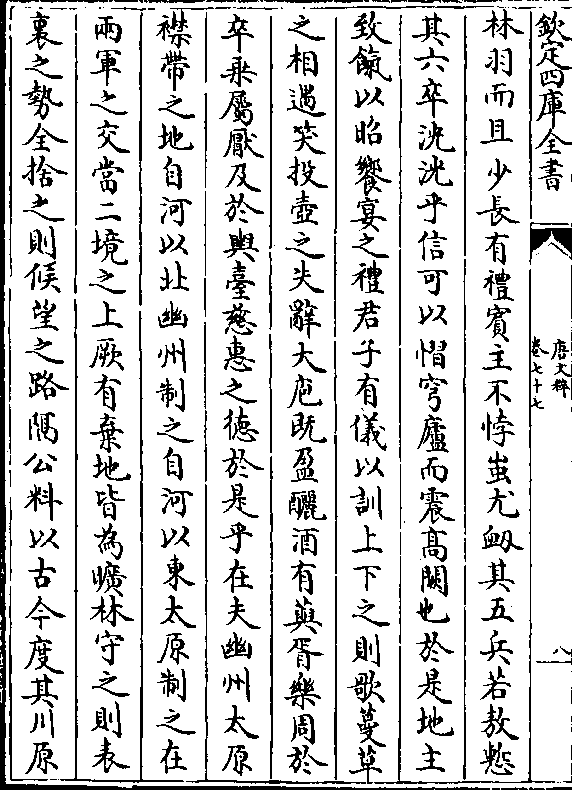 欽定四庫全書
唐文粹
卷七十七
八
林羽而且少長有禮賓主不悖蚩尤衂其五兵若敖愬
其六卒洸洸乎信可以慴穹廬而震高闕也於是地主
致餼以昭饗宴之禮君子有儀以訓上下之則歌蔓草
之相遇笑投壺之失辭大庖既盈釃酒有藇胥樂周於
卒乗屬厭及於輿臺慈惠之德於是乎在夫幽州太原
襟帶之地自河以北幽州制之自河以東太原制之在
兩軍之交當二境之上厥有棄地皆為曠林守之則表
裏之勢全捨之則候望之路隅公料以古今度其川原